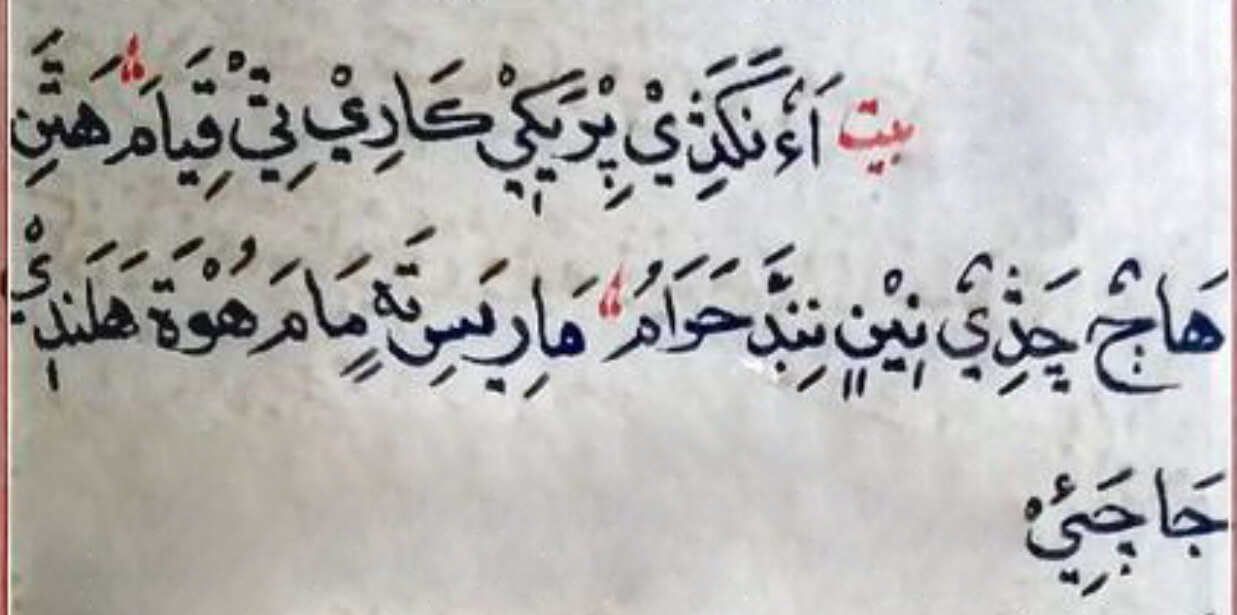 بيت اَءُ نَکَڎِيْ پِرِيَکِيْ کَارِيْ تِيْ قِيَامَ هَتَّنِ
هَاڃُ چَڎِيْ نِيْنٍ نِنِدَّ حَرَامُ مَارِيَسِ تَه مَامَ هُوْةَ هَلَندِيْ
جَا چَئِيْ